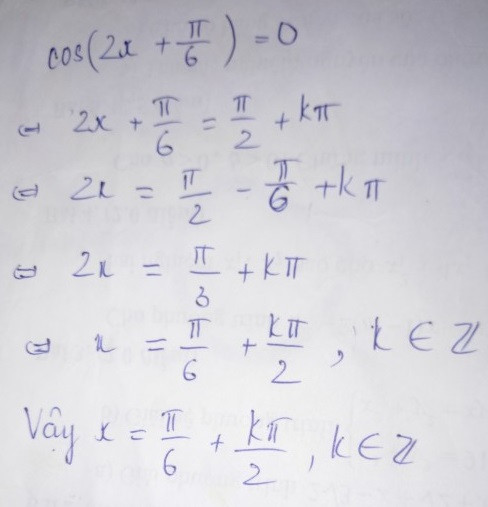 cos(2x + π/6) = 0
⇔ 2x + π/6 = π/2 + kπ
⇔ 2x = π/2 - π/6 + kπ
⇔ 2x = π/3 + kπ
⇔ x = π/6 + kπ/2 , k ∈ ℤ
Vậy x = π/6 + kπ/2 , k ∈ ℤ